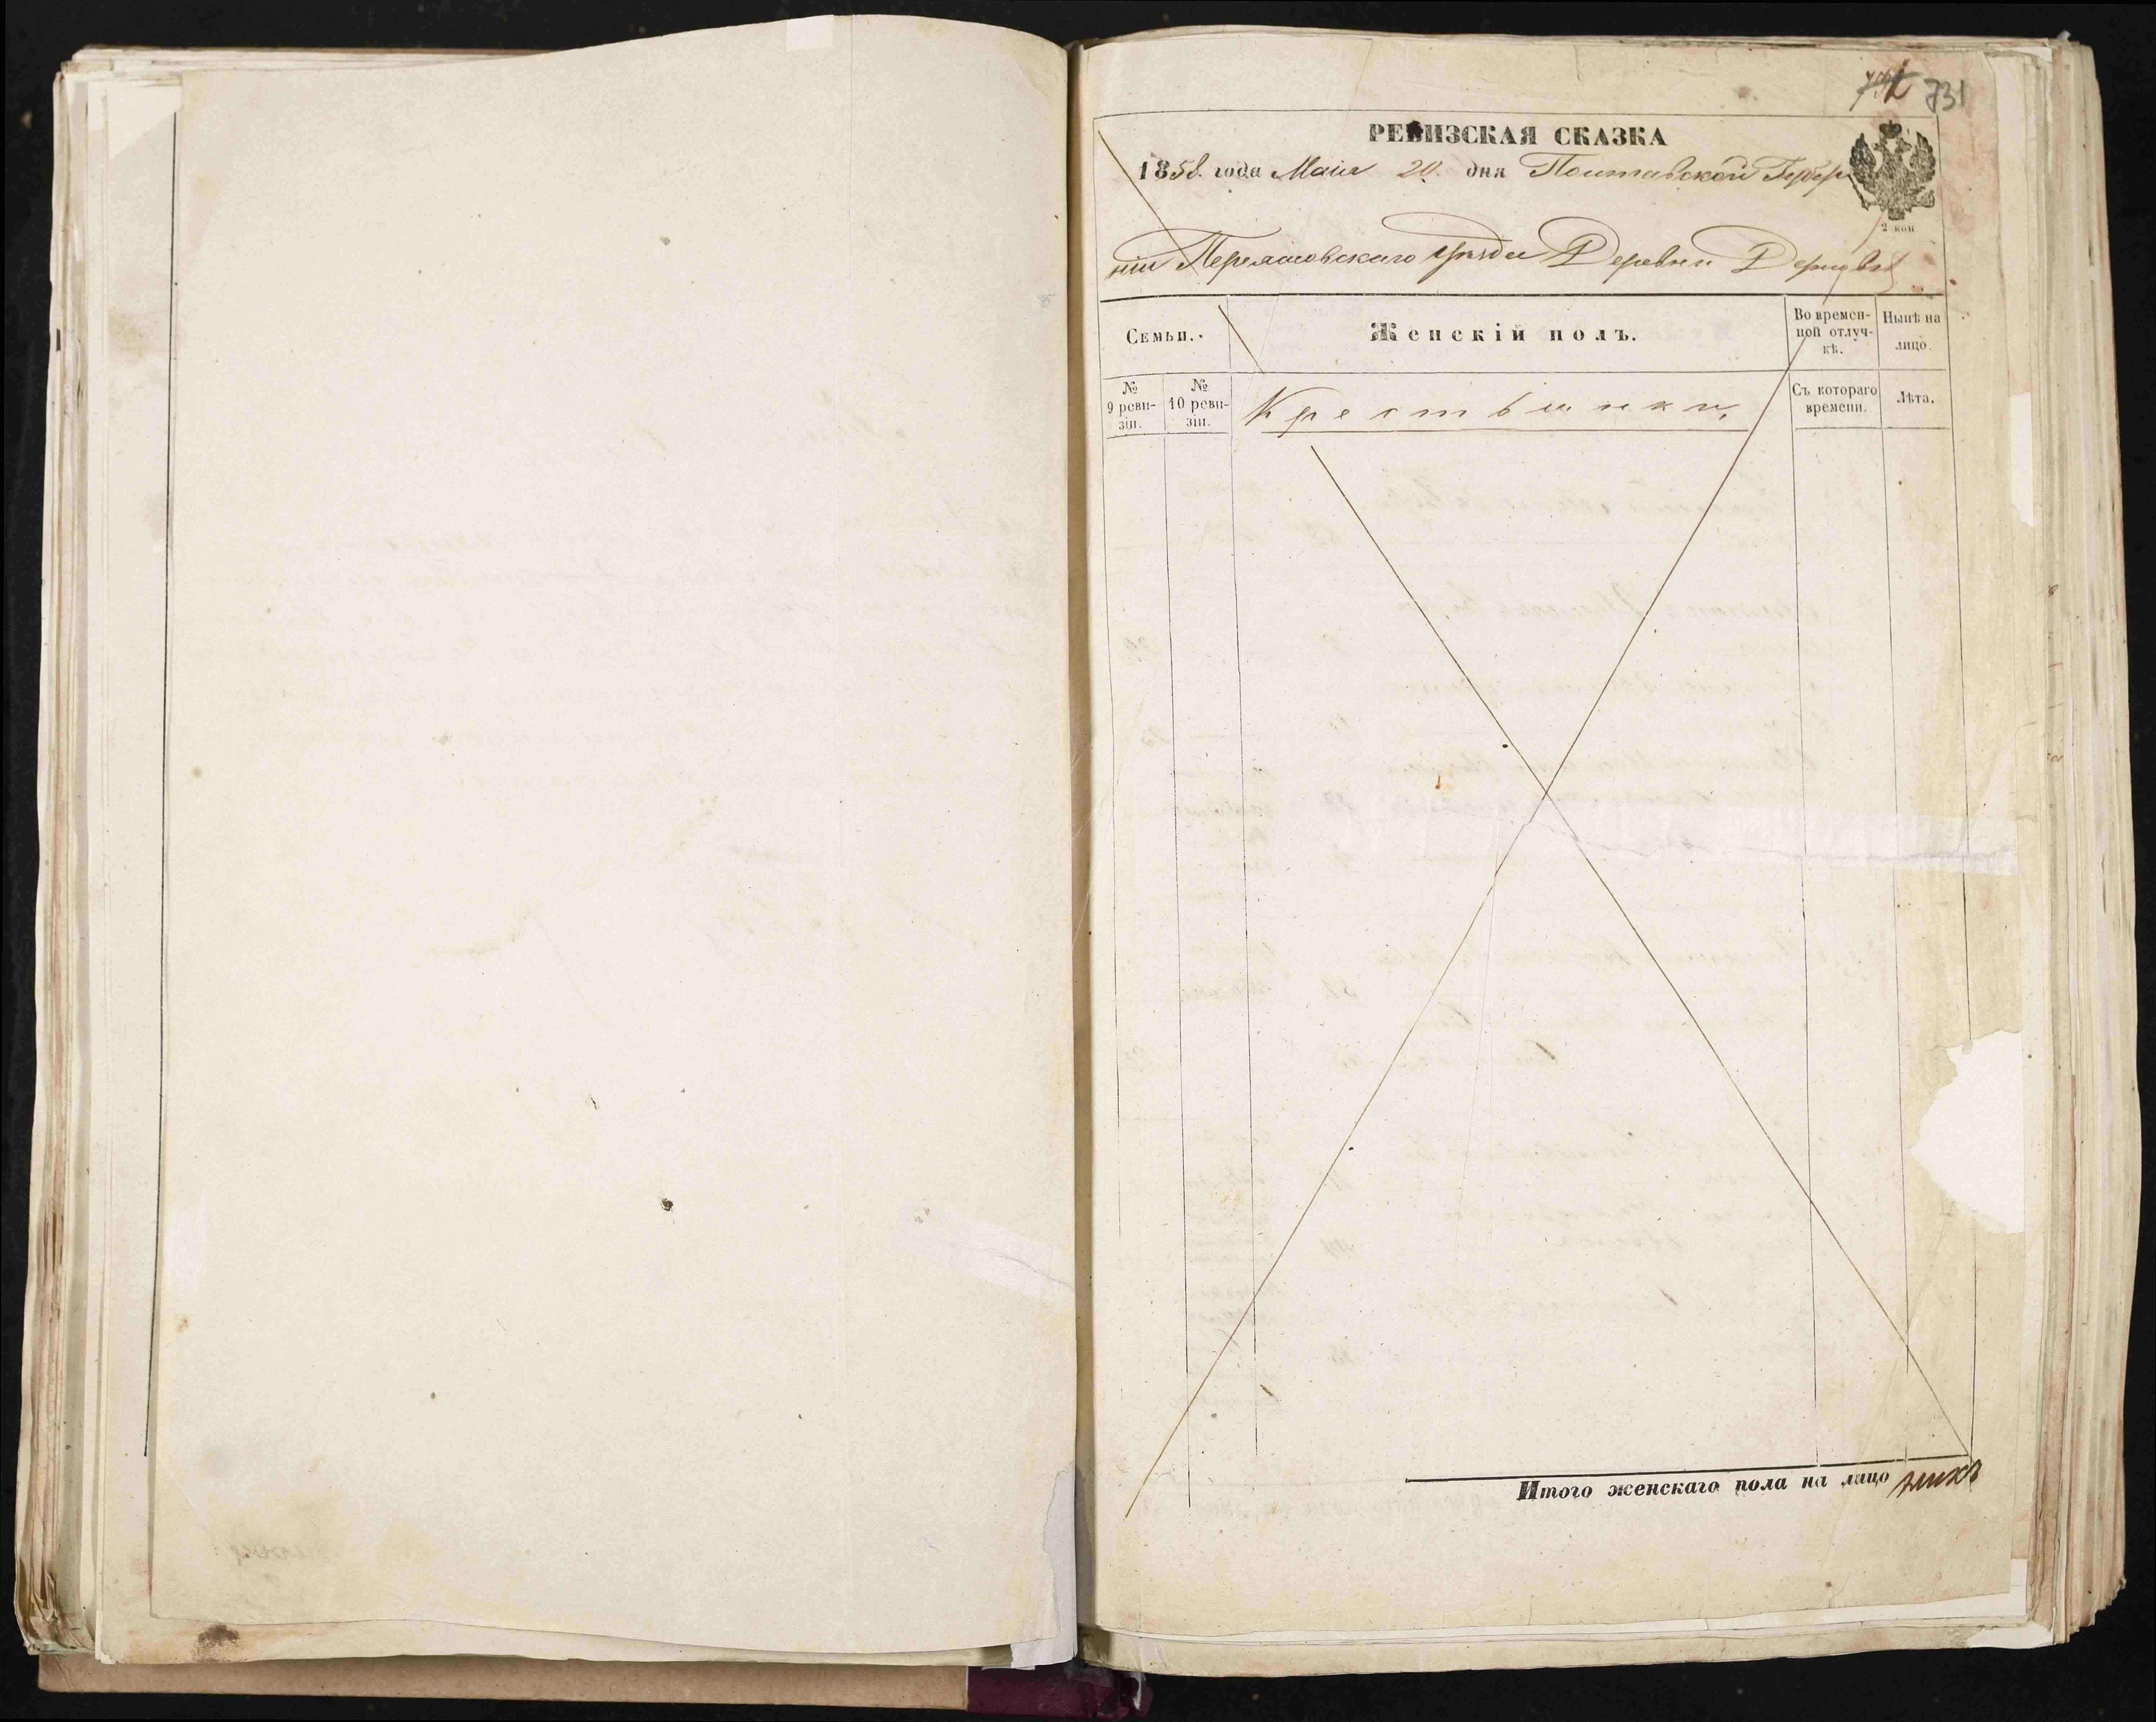 732 731
РЕВИЗСКАЯ СКАЗКА
1858. года Маія 20. дня Полтавской Губер
2 коп.
ніи Переяславскаго Уѣзда Деревни
Семьи.
Женскій полъ.
Во времен-
ной отлуч-
кѣ.
Нынѣ на
лицо.
№
9 реви-
зіи.
№
10 реви-
зіи.
Крестьянки
Съ котораго
времени.
Лѣта.
Итого женскаго пола на лицо